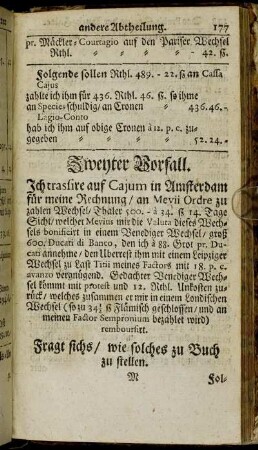 andere Abtheilung. 177
pr. Mäckler-Courtagio auf den Pariser Wechsel
Rthl. " " " " 42. ß.
Folgende sollen Rthl. 489. - 22. ß an Cassa
Cajus
zahlte ich ihm für 436. Rthl. 46. ß. so ihme
an Species schuldig/ an Cronen " 436.46.-
Lagio-Conto
hab ich ihm auf obige Cronen à 12. p. c. zu-
gegeben " " " " 52.24.-
Zweyter Vorfall.
Ich trassire auf Cajum in Amsterdam
für meine Rechnung/ an Mevii Ordre zu
zahlen Wechsel/ Thaler 500. - à 34. ß 14. Tage
Sicht/ welcher Mevius mir die Valuta dieses Wech-
sels bonificirt in einem Venediger Wechsel/ groß
600. Ducati di Banco, den ich à 88. Grot pr. Du-
cati annehme/ den Uberrest ihm mit einem Leipziger
Wechsel zu Last Titii meines Factors mit 18. p. c.
avanzo vergnügend. Gedachter Venediger Wech-
sel kommt mit protest und 12. Rthl. Unkosten zu-
rück/ welches zusammen er mir in einem Londischen
Wechsel (so zu 34½ ß Flämisch geschlossen/ und an
meinen Factor Sempronium bezahlet wird)
remboursirt.
Fragt sichs/ wie solches zu Buch
zu stellen.
M Fol-